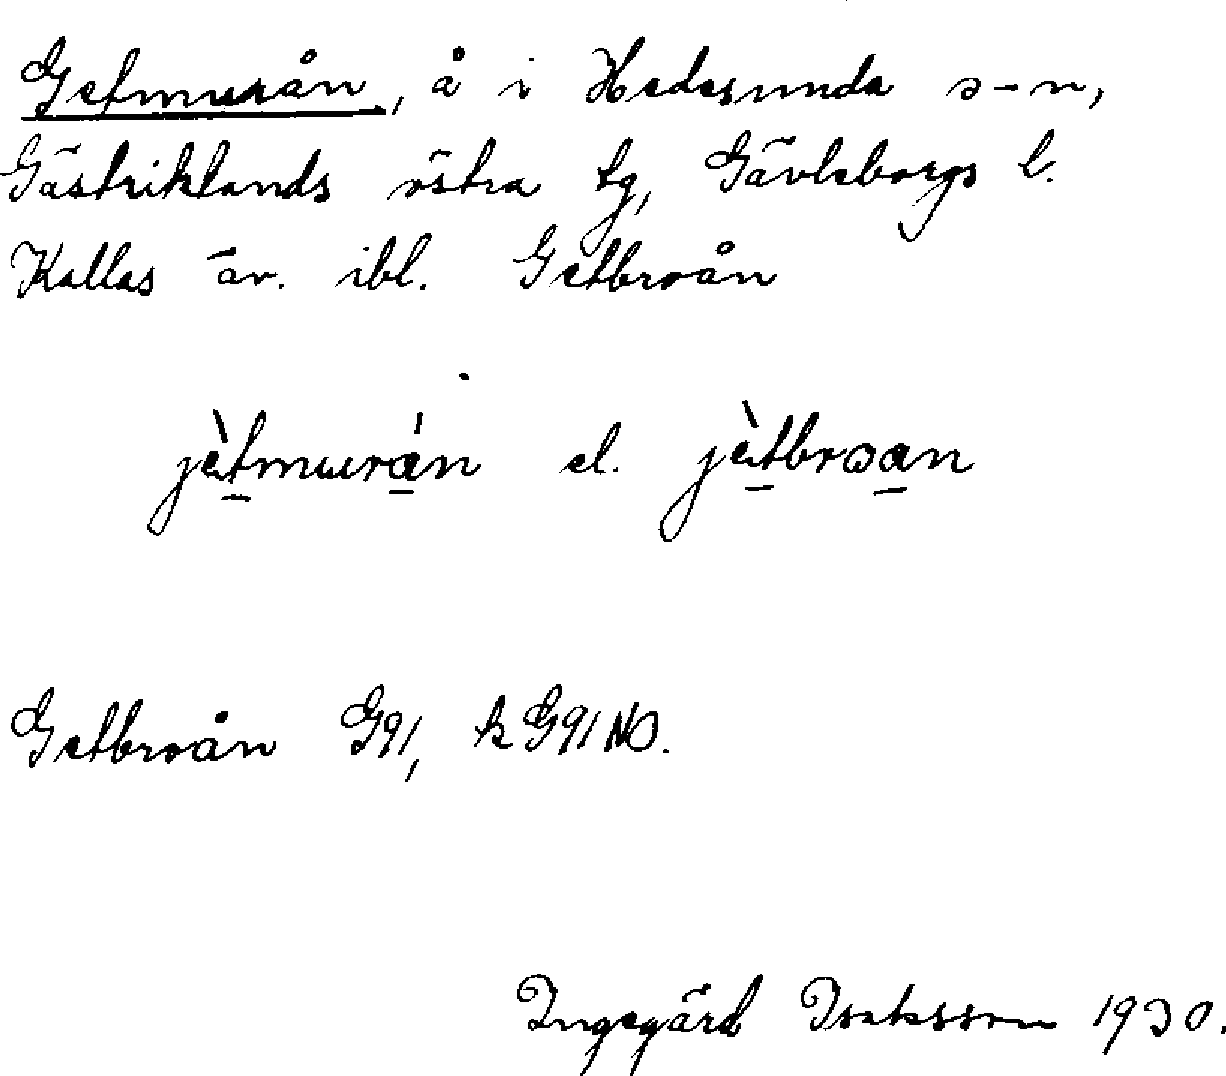 Getmurån, å i Hedesunda s-n,
Gästriklands östra tg, Gävleborgs l.
Kallas äv. ibl. Getbroån
jètmurán el. jètbroan
Getbroån G91, k G91 NO.
Ingegärd Isaksson 1930.